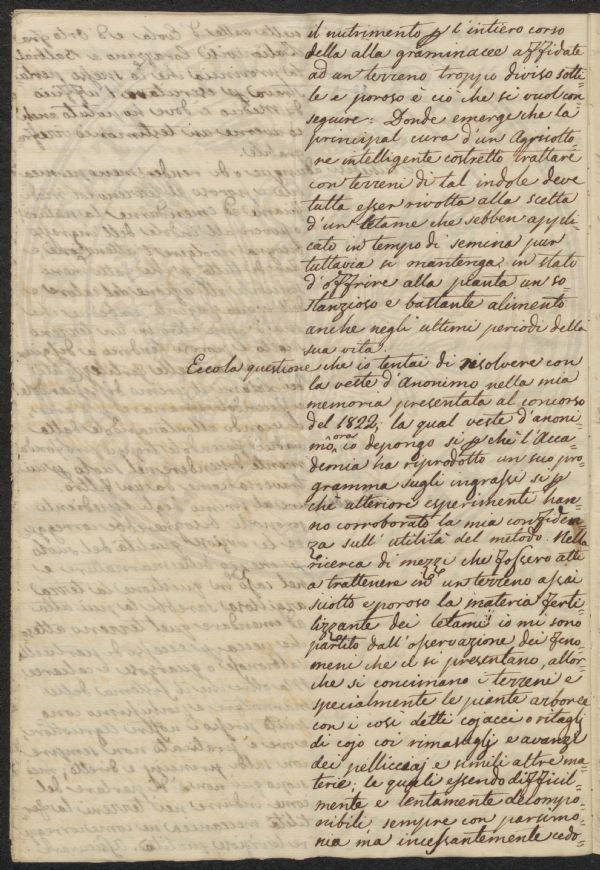 il nutrimento p l'intiero corso
della alla graminacee affidate
ad un terreno troppo diviso sotti=
le e poroso è ciò che si vuol con=
seguire: Donde emerge che la
principal cura d'un Agricolto=
re intelligente costretto trattare
con terreni di tal indole deve
tutta esser rivolta alla scelta
d'un letame che sebben appli=
cato in tempo di semina pur
tuttavia si mantenga in stato
d'offrire alla pianta un so=
stanzioso e bastante alimento
anche negli ultimi periodi della
sua vita.
Ecco la questione che io tentai di risolvere con
la veste d'Anonimo nella mia
memoria presentata al concorso
del 1822; la qual veste d'anoni=
mo ora io depongo si p chè l'Acca=
demia ha riprodotto un suo pro=
gramma sugli ingrassi si p
chè ulteriori esperimenti han=
no corroborato la mia confiden=
za sull'utilità del metodo. Nella
ricerca di mezzi che fossero atti
a trattenere in un terreno assai
sciolto e poroso la materia ferti=
lizzante dei letami io mi sono
partito dall'osservazione dei feno=
meni che si presentano, allor=
che si concimano i terreni e
specialmente le piante arboree
con i così detti cojacci o ritagli
di cojo coi rimasugli e avanzi
dei pelliccaj e simili altre ma=
terie; le quali essendo difficil=
mente e lentamente decompo=
nibili sempre con parsimo=
nia ma incessantemente cedo=